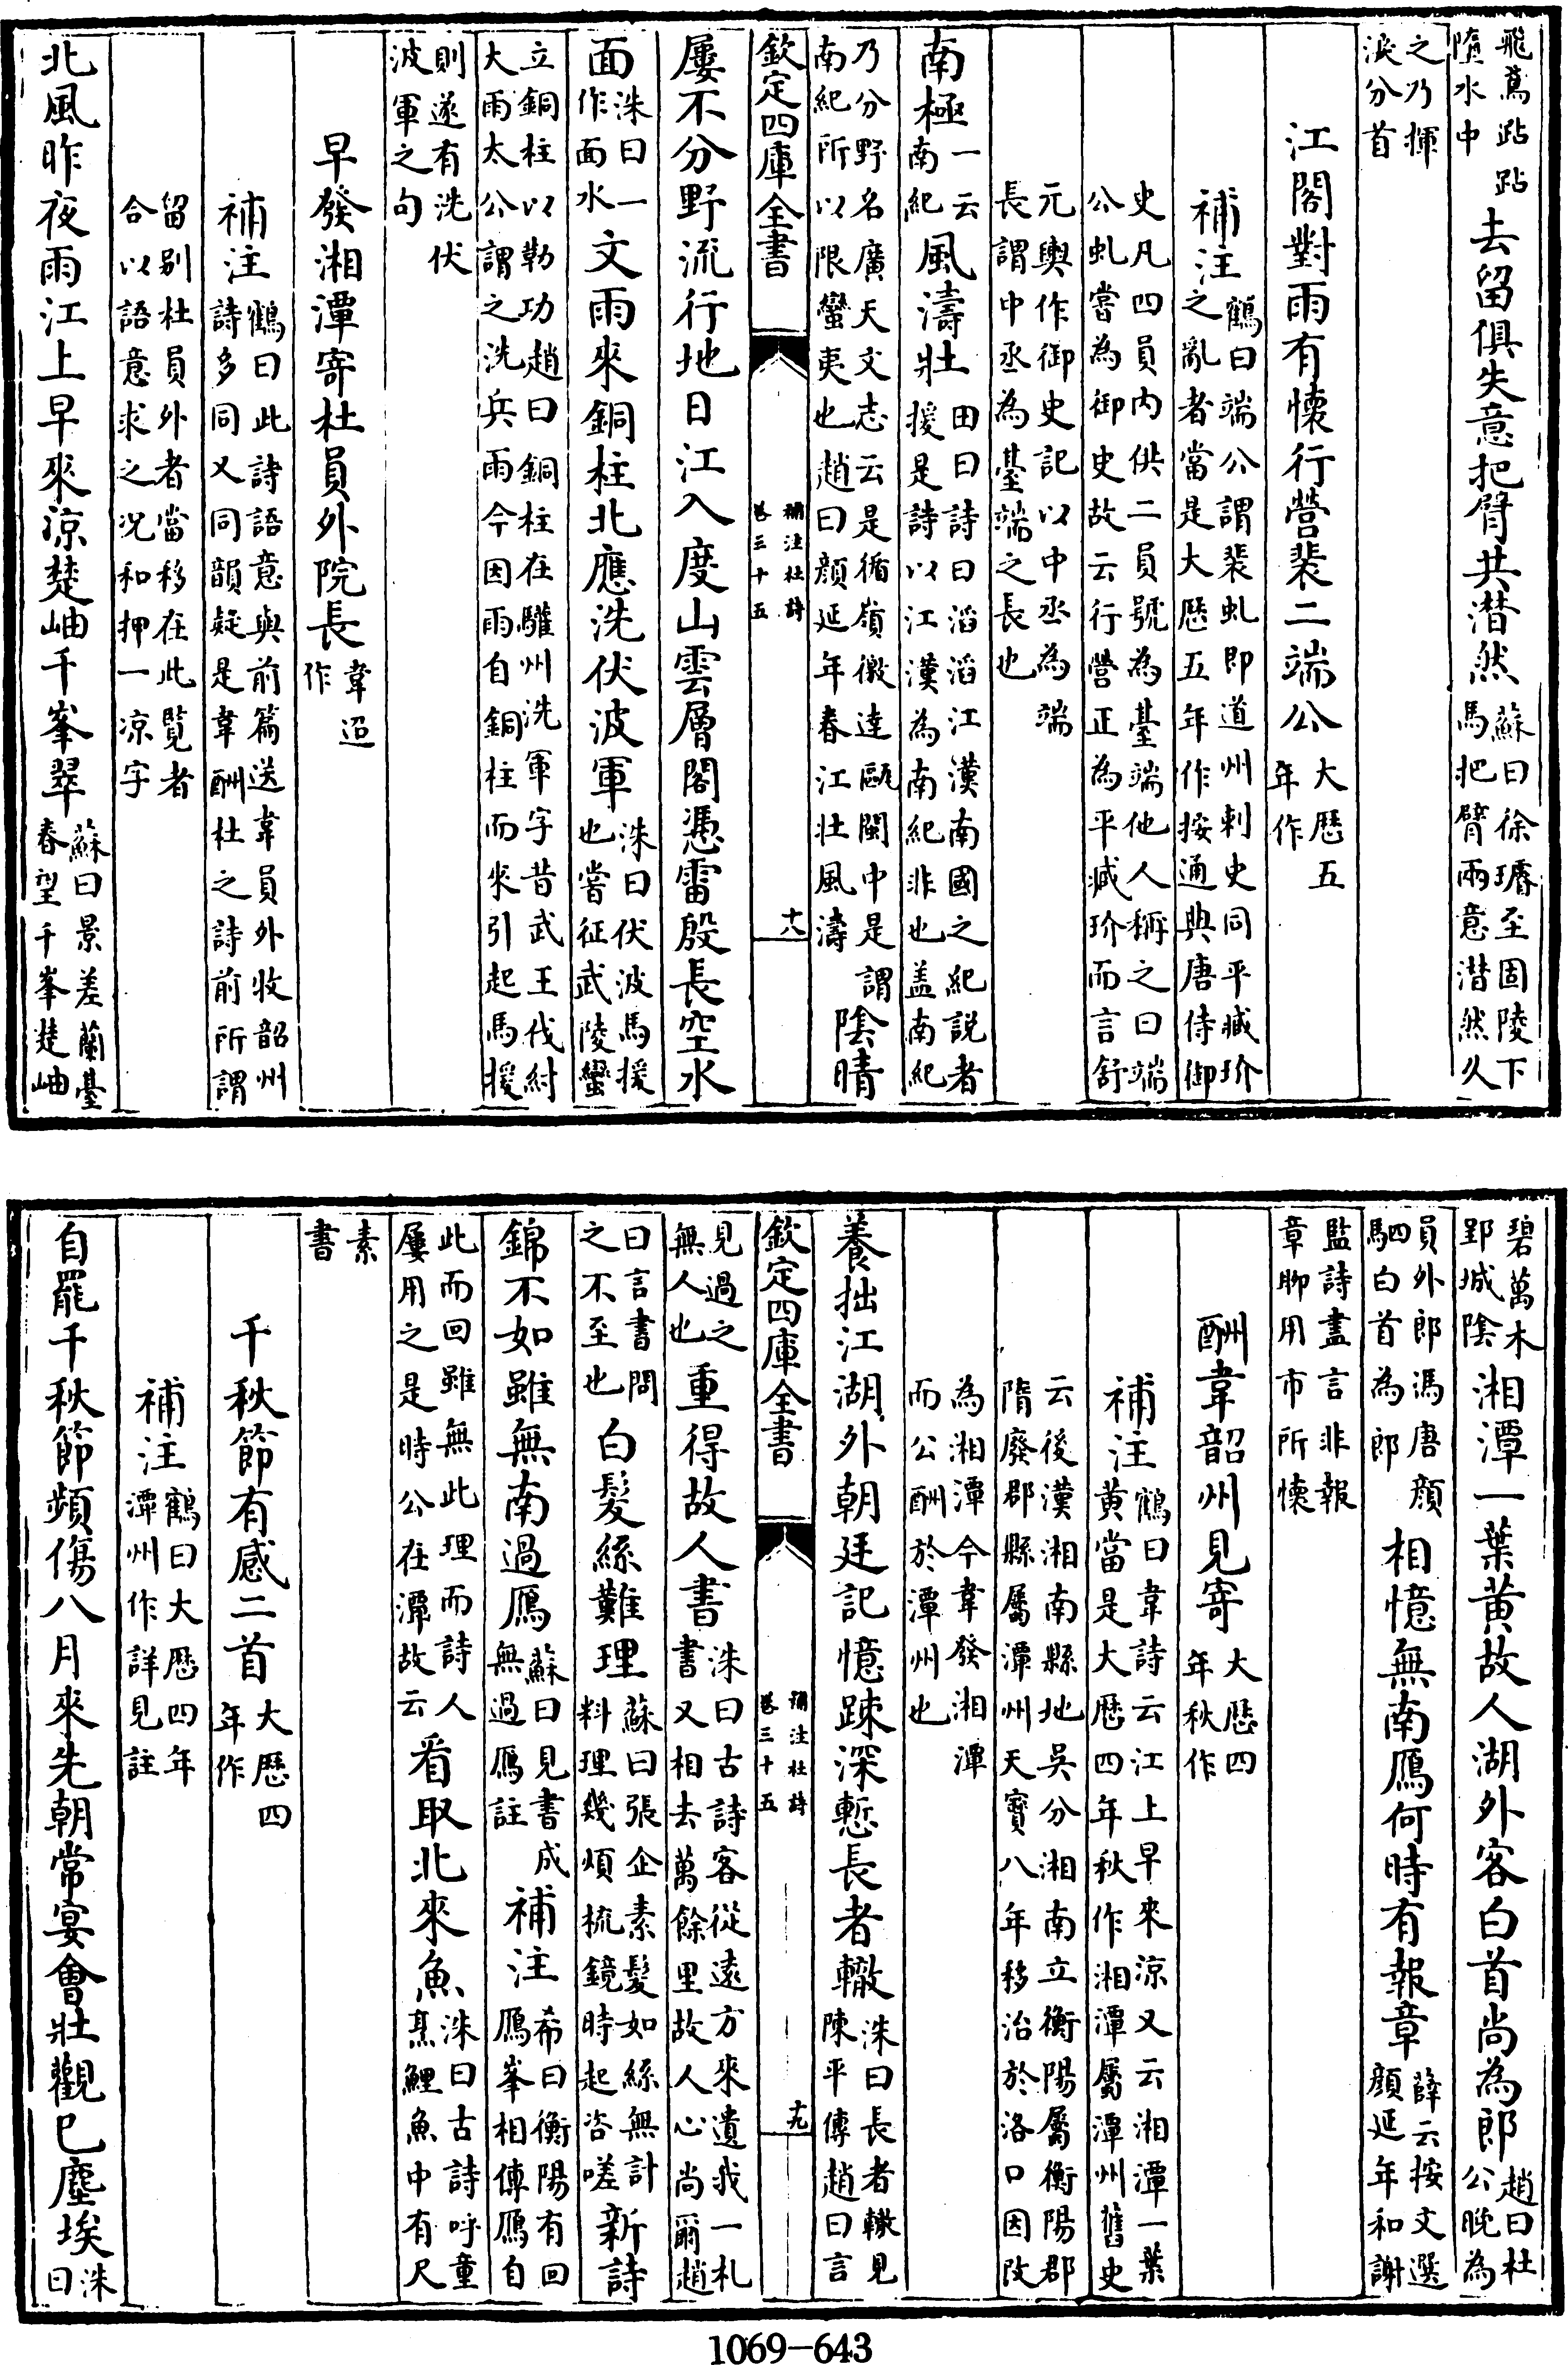 飛鳶跕跕墮水中去留俱失意把臂共潸然蘇曰徐璿至固陵下馬把臂兩意潸然久
之乃揮淚分首
江閣對雨有懷行營裴二端公大厯五年作
補注鶴曰端公謂裴虬即道州刺史同平臧玠之亂者當是大厯五年作按通典唐侍御
史凡四員内供二員號為臺端他人稱之曰端公虬嘗為御史故云行營正為平臧玠而言舒
元輿作御史記以中丞為端長謂中丞為臺端之長也
南極一云南紀風濤壯田曰詩曰滔滔江漢南國之紀説者援是詩以江漢為南紀非也盖南紀
乃分野名廣天文志云是循嶺徼逹甌閩中是謂南紀所以限蠻夷也趙曰顔延年春江壯風濤陰晴
欽定四庫全書
補注杜詩卷三十五
十八
屢不分野流行地日江入度山雲層閣憑雷殷長空水
面洙曰一作面水文雨來銅柱北應洗伏波軍洙曰伏波馬援也嘗征武陵蠻
立銅柱以勒功趙曰銅柱在驩州洗軍字昔武王伐紂大雨太公謂之洗兵雨今因雨自銅柱而來引起馬援
則遂有洗伏波軍之句
早發湘潭寄杜員外院長韋迢作
補注鶴曰此詩語意與前篇送韋員外收韶州詩多同又同韻疑是韋酬杜之詩前所謂
留别杜員外者當移在此覽者合以語意求之况和押一凉字
北風昨夜雨江上早來凉楚岫千峯翠蘇曰景差蘭臺春望千峯楚岫
碧萬木郢城陰湘潭一葉黄故人湖外客白首尚為郎趙曰杜公晚為
員外郎馮唐顔駟白首為郎相憶無南鴈何時有報章薛云按文選顔延年和謝
監詩盡言非報章聊用市所懷
酬韋韶州見寄大厯四年秋作
補注鶴曰韋詩云江上早來凉又云湘潭一葉黄當是大厯四年秋作湘潭屬潭州舊史
云後漢湘南縣地吳分湘南立衡陽屬衡陽郡隋廢郡縣屬潭州天寳八年移治於洛口因改
為湘潭今韋發湘潭而公酬於潭州也
養拙江湖外朝廷記憶踈深慙長者轍洙曰長者轍見陳平傳趙曰言
欽定四庫全書
補注杜詩卷三十五
十九
見過之無人也重得故人書洙曰古詩客從逺方來遺我一札書又相去萬餘里故人心尚爾趙
曰言書問之不至也白髮絲難理蘇曰張企素髮如絲無計料理幾煩梳鏡時起咨嗟新詩
錦不如雖無南過鴈蘇曰見書成無過鴈註補注希曰衡陽有回鴈峯相傳鴈自
此而回雖無此理而詩人屢用之是時公在潭故云看取北來魚洙曰古詩呼童烹鯉魚中有尺
素書
千秋節有感二首大厯四年作
補注鶴曰大厯四年潭州作詳見註
自罷千秋節頻傷八月來先朝常宴會壯觀已塵埃洙曰
1069-643